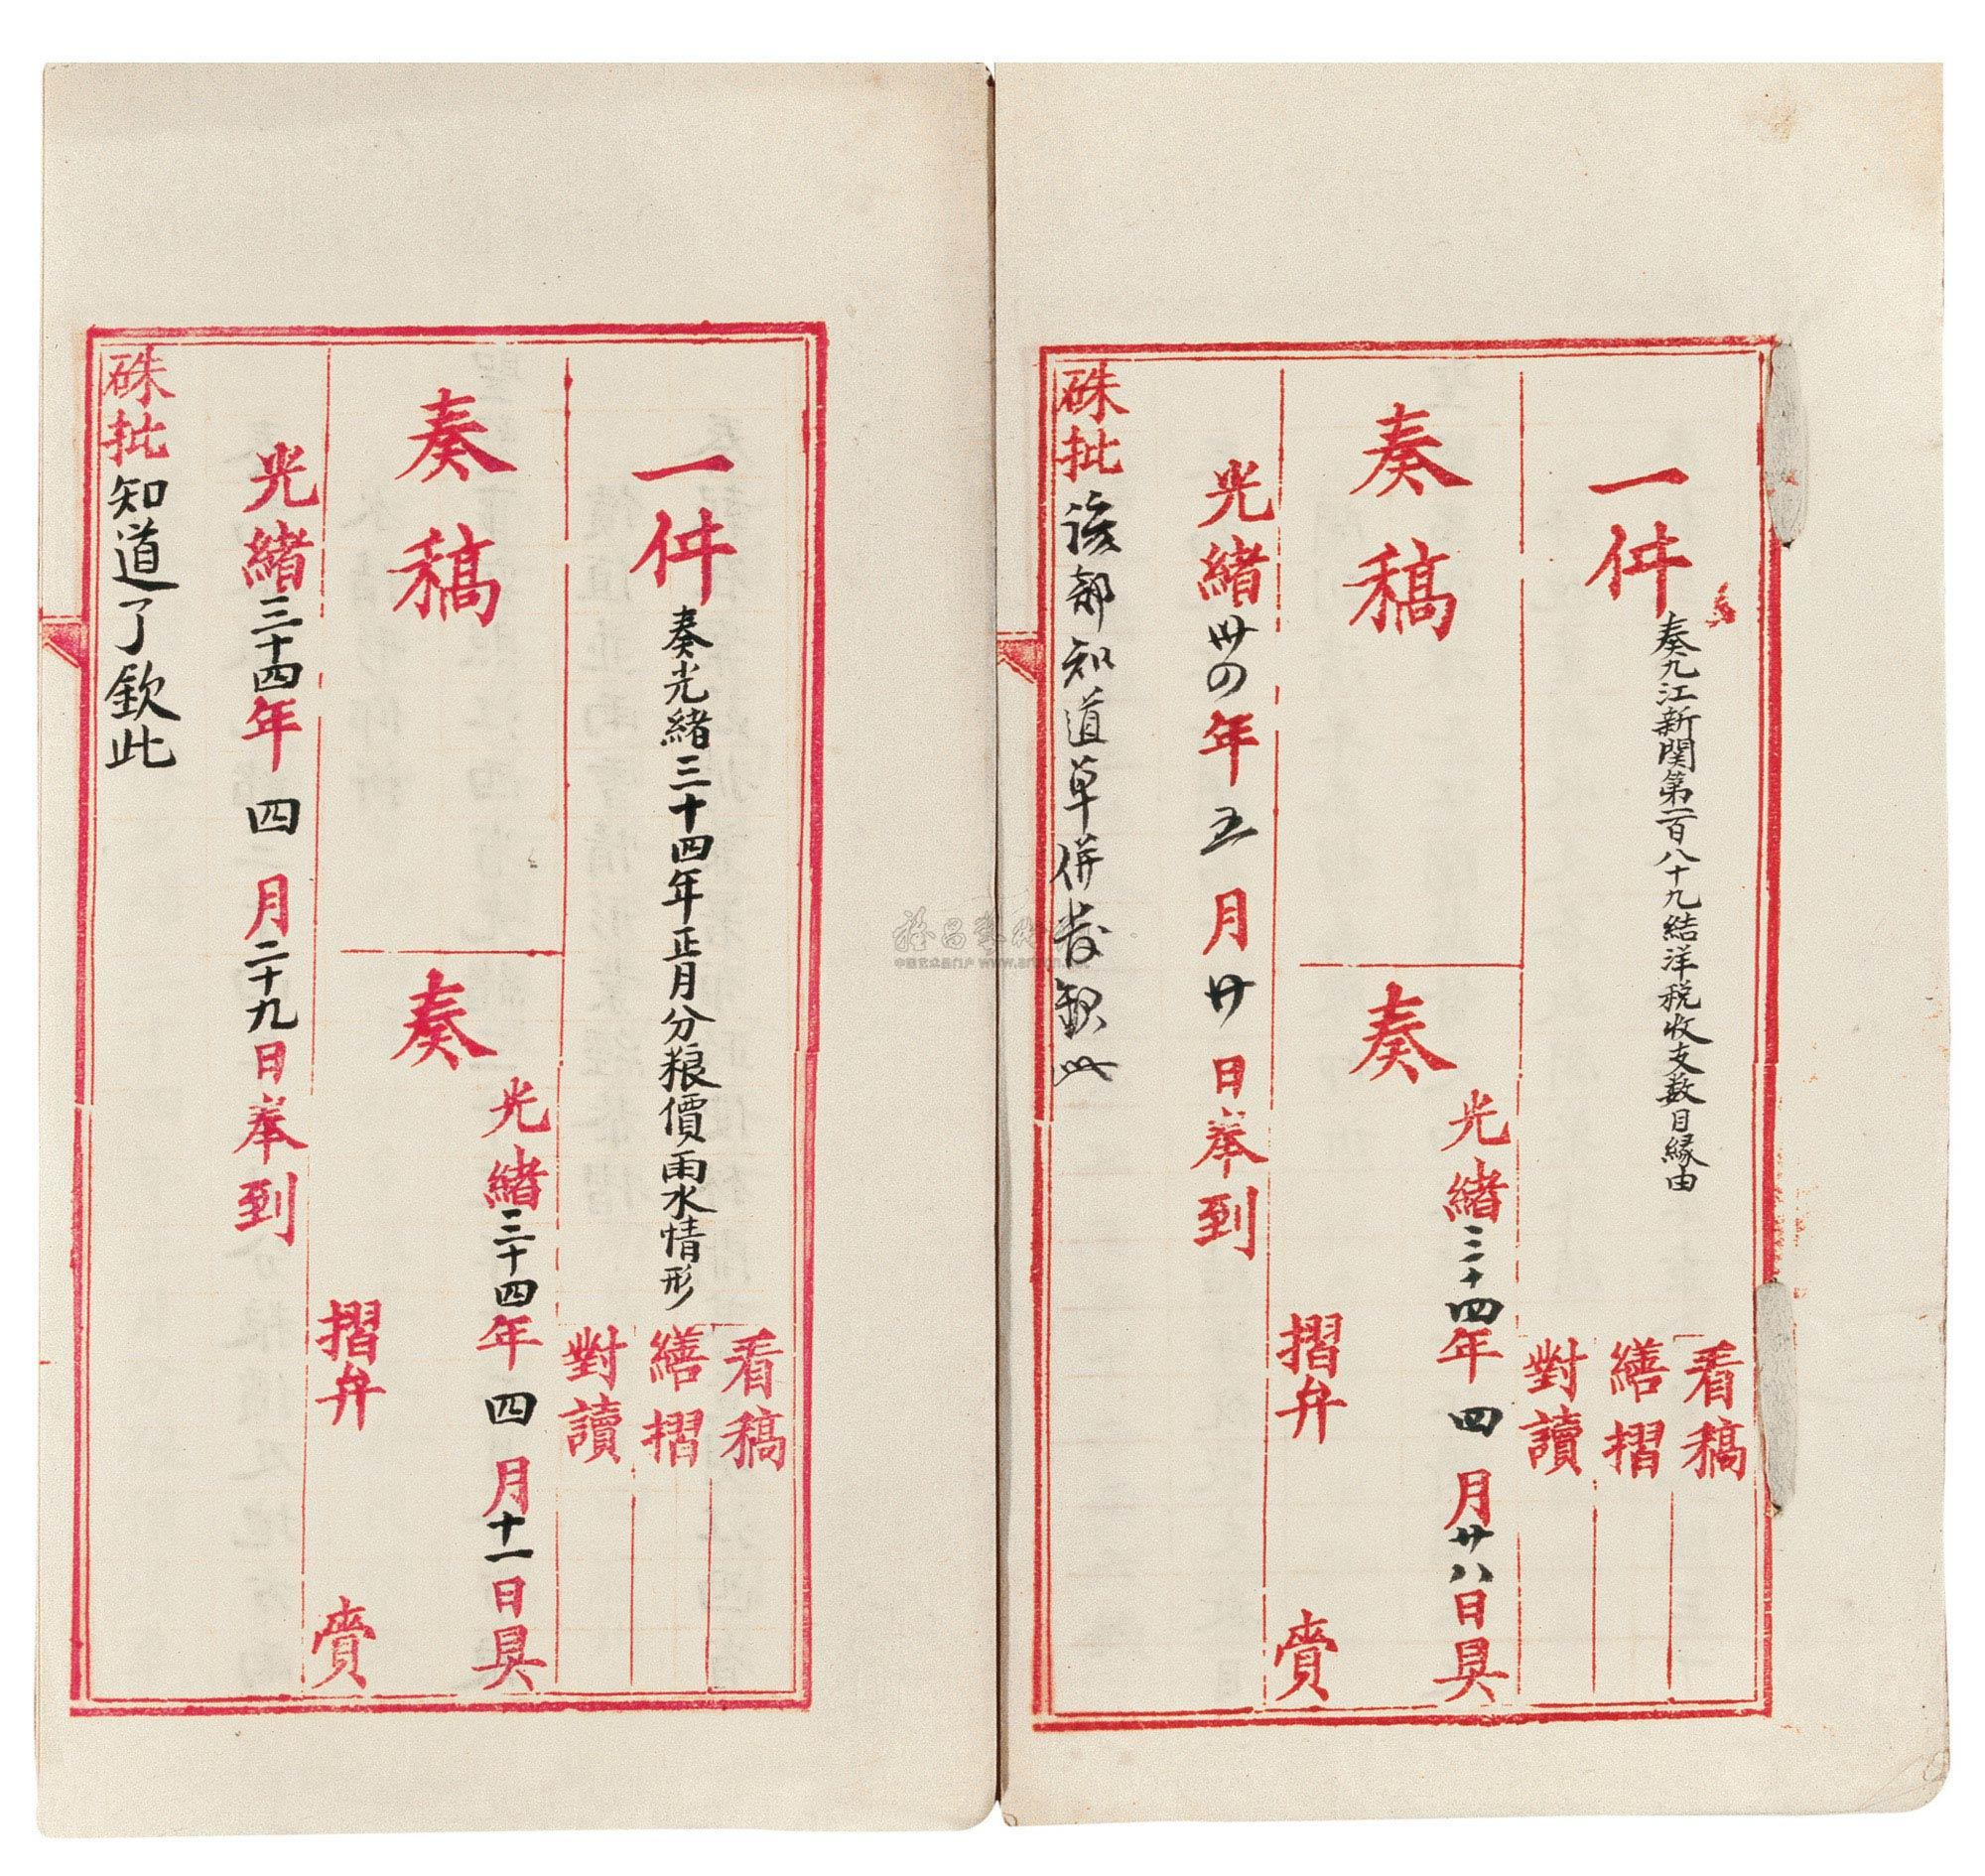 一件奏九江新関第一百八十九結洋税收支数目緣由
看稿
繕摺
對讀
奏稿
奏
光緒三十四年四月廿八日具
摺弁 賫
光緒卅四年五月廿日奉到
硃批該部知道單併發欽此
一件奏光緒三十四年正月分粮價雨水情形
看稿
繕摺
對讀
奏稿
奏
光緒三十四年四月十一日具
摺弁 賫
光緒三十四年四月二十九日奉到
硃批知道了欽此